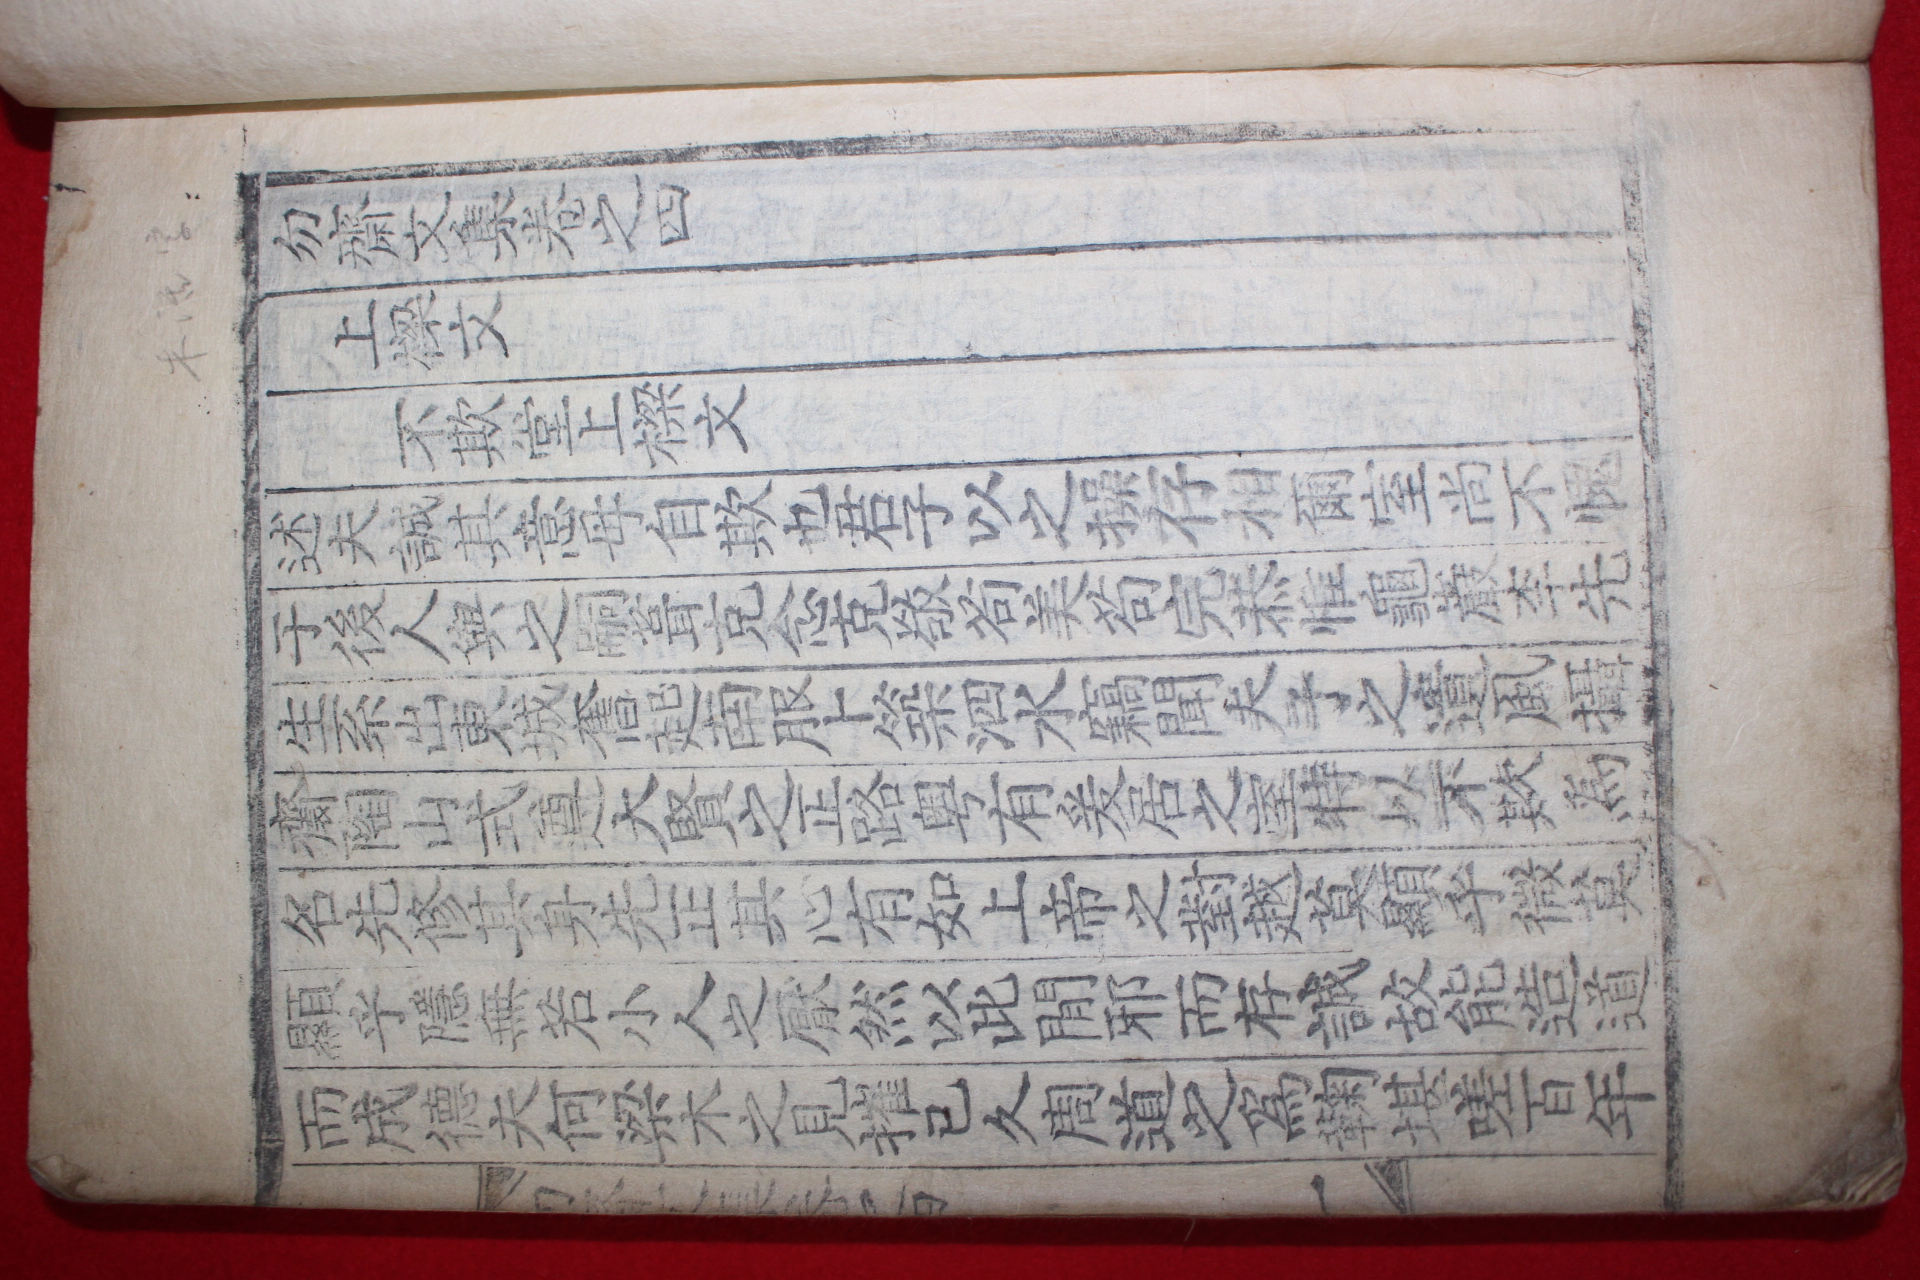 木活字
勿齋文集卷之四
上樑文
不欺堂上樑文
述夫誠其意毋自欺也君子以之操存相爾室尚不愧
于後人與之嗣葺克念克敬苟美苟完恭惟龜巖李先
生系出東城奮起南服卜築泗水竊聞夫子之遺風攝
齋陶山式遵大賢之正路粤有爰居之室特以不欺爲
名先修其身先正其心有如上帝之對越莫顯乎微莫
顯乎隱無若小人之厭然以此閒邪而存誠故能造道
而成德夫何梁木之見摧已久周道之爲鞠堪嗟百年
勿齋文集卷之四 一